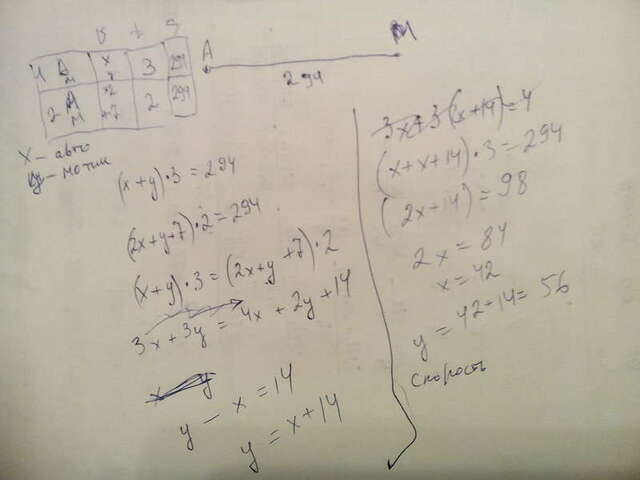 v t S
1 А x 3 294
м y
2 А x2 2 294
м +7
А М
294
x – авто
y – мотик
(x+y)·3=294
(2x+y+7)·2=294
(x+y)·3=(2x+y+7)·2
3x+3y=4x+2y+14
x y
y-x=14
y=x+14
3x+3(x+14)=4
(x+x+14)·3=294
(2x+14)=98
2x=84
x=42
y=42+14=56
скорость